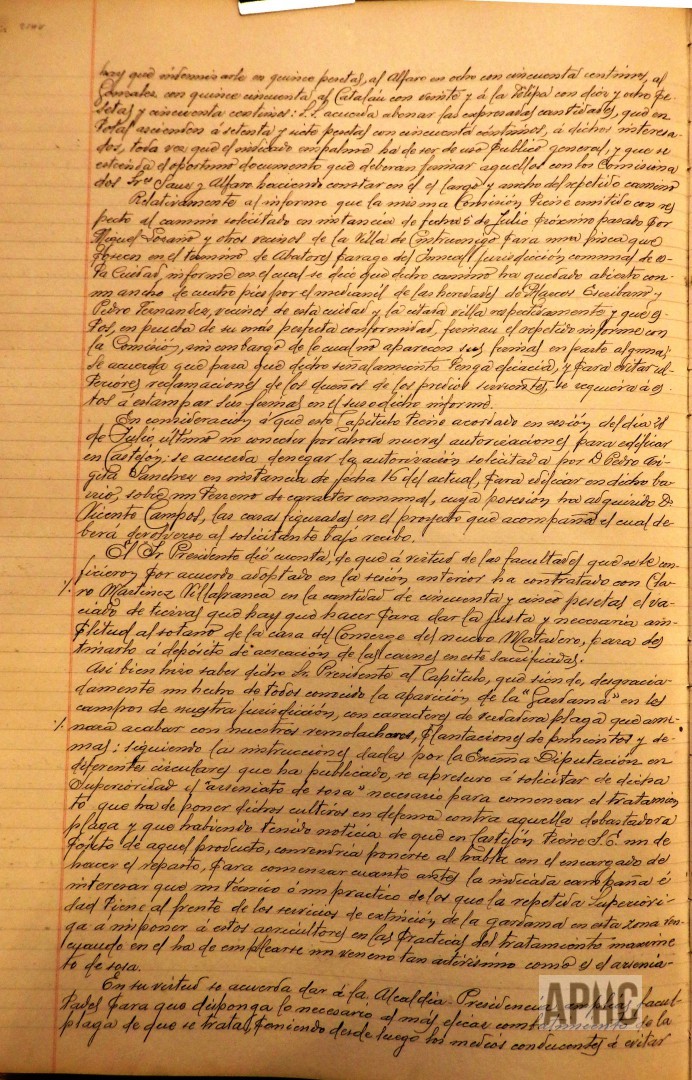 hay que indemnizarle en quince pesetas, al Alfaro en ocho con cincuenta centimos, al
Gonzalez con quince cincuenta, al Catalán con veinte y á la Felipa con diez y ocho pe-
setas y cincuenta centimos: S.S. acuerda abonar las expresadas cantidades, que en
total ascienden á setenta y siete pesetas con cincuenta céntimos, á dichos interesa-
dos, toda vez que el indicado empalme ha de ser de uso público general, y que se
estienda el oportuno documento que deberan firmar aquellos con los Comisiona
dos Sres Sanz y Alfaro haciendo constar en él el largo y ancho del repetido camino
Relativamente al informe que la misma Comisión tiene emitido con res
pecto al camino solicitado en instancia de fecha 5 de Julio próximo pasado por
Miguel Lozano y otros vecinos de la villa de Cintruenigo para una finca que
poseen en el término de Abatores parage del Juncal jurisdicción comunal de es-
ta Ciudad, informe en el cual se dice que dicho camino ha quedado abierto con
un ancho de cuatro pies por el medianil de las heredades de Marcos Escribano y
Pedro Fernandez, vecinos de esta ciudad y la citada villa respectivamente y que es-
tos, en prueba de su más perfecta conformidad, firman el repetido informe con
la Comisión, sin embargo de lo cual no aparecen sus firmas en parte alguna;
se acuerda que para que dicho señalamiento tenga eficacia, y para evitar ul-
teriores reclamaciones de los dueños de los predios sirvientes, se requiera á es-
tos á estampar sus firmas en el susodicho informe.
En consideración á que este Capitulo tiene acordado en sesión del dia 28
de Julio último no conceder por ahora nuevas autorizaciones para edificar
en Castejón: se acuerda denegar la autorización solicitada por D. Pedro
Sanchez en instancia de fecha 16 del actual, para edificar en dicho ba-
rrio, sobre un terreno de caracter comunal, cuya posesión ha adquirido de
Vicente Campos, las casas figuradas en el proyecto que acompaña el cual de-
berá devolverse al solicitante bajo recibo.
El Sr. Presidente dió cuenta, de que á virtud de las facultades que se le con-
firieron por acuerdo adoptado en la sesión anterior ha contratado con
Martinez Villafranca en la cantidad de cincuenta y cinco pesetas el va-
ciado de tierras que hay que hacer para dar la justa y necesaria am-
plitud al sotano de la casa del Conserge del nuevo Matadero, para des
tinarlo á depósito de aereación de las carnes en este sacrificadas.
Asi bien hizo saber dicho Sr. Presidente al Capitulo, que siendo, desgracia-
damente un hecho de todos conocido la aparición de la "Gardama" en los
campos de nuestra jurisdicción, con caracteres de verdadera plaga que ame-
naza acabar con nuestros remolachares, plantaciones de pimientos y de-
mas; siguiendo las instrucciones dadas por la Excma Diputación en
diferentes circulares que ha publicado, se apresuro á solicitar de dicha
Superioridad el "arseniato de sosa" necesario para comenzar el tratamien
to que ha de poner dichos cultivos en defensa contra aquella debastadora
plaga y que habiendo tenido noticia de que en Castejón tiene S.E. un de
pósito de aquel producto, convendria ponerse al habla con el encargado de
hacer el reparto, para comenzar cuanto antes la indicada campaña é
interesar que un técnico ó un practico de los que la repetida Superiori-
dad tiene al frente de los servicios de extinción de la gardama en esta zona ven-
ga á imponer á estos agricultores en las practicas del tratamiento maxime
cuando en el ha de emplearse un veneno tan activisimo como es el arsenia-
to de sosa.
En su virtud se acuerda dar á la Alcaldia-Presidencia amplias facul-
tades para que disponga lo necesario al más eficaz de la
plaga de que se trata, poniendo desde luego los medios conducentes á evitar
APHC